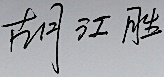 胡江胜